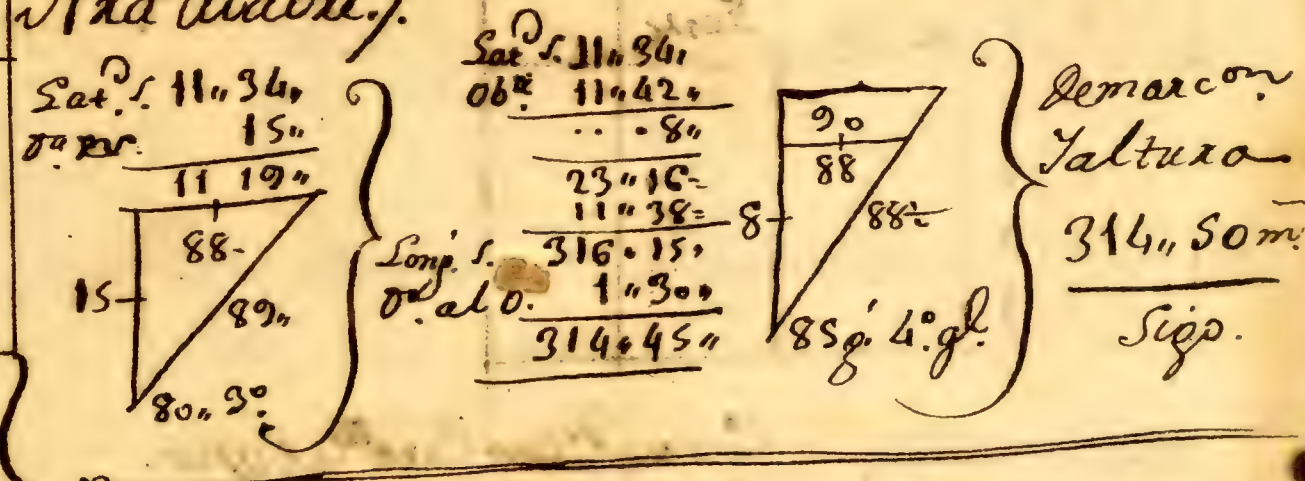 Lat. S. 11,, 34,,
15,,
11 19,,
88-
15
89,,
80,, 3º.
Lat. S. 11,, 34,,
Obª 11,, 42,,
. . . 8,,
23,, 16-
11,, 38=
Long. S. 316,, 15,,
Dª. al O. 1,, 30,,
314,, 45,,
90
88
8
88½
85 g. 4º. gl.
Demarcon.
Yaltura
314,, 50 m.
Sigo.